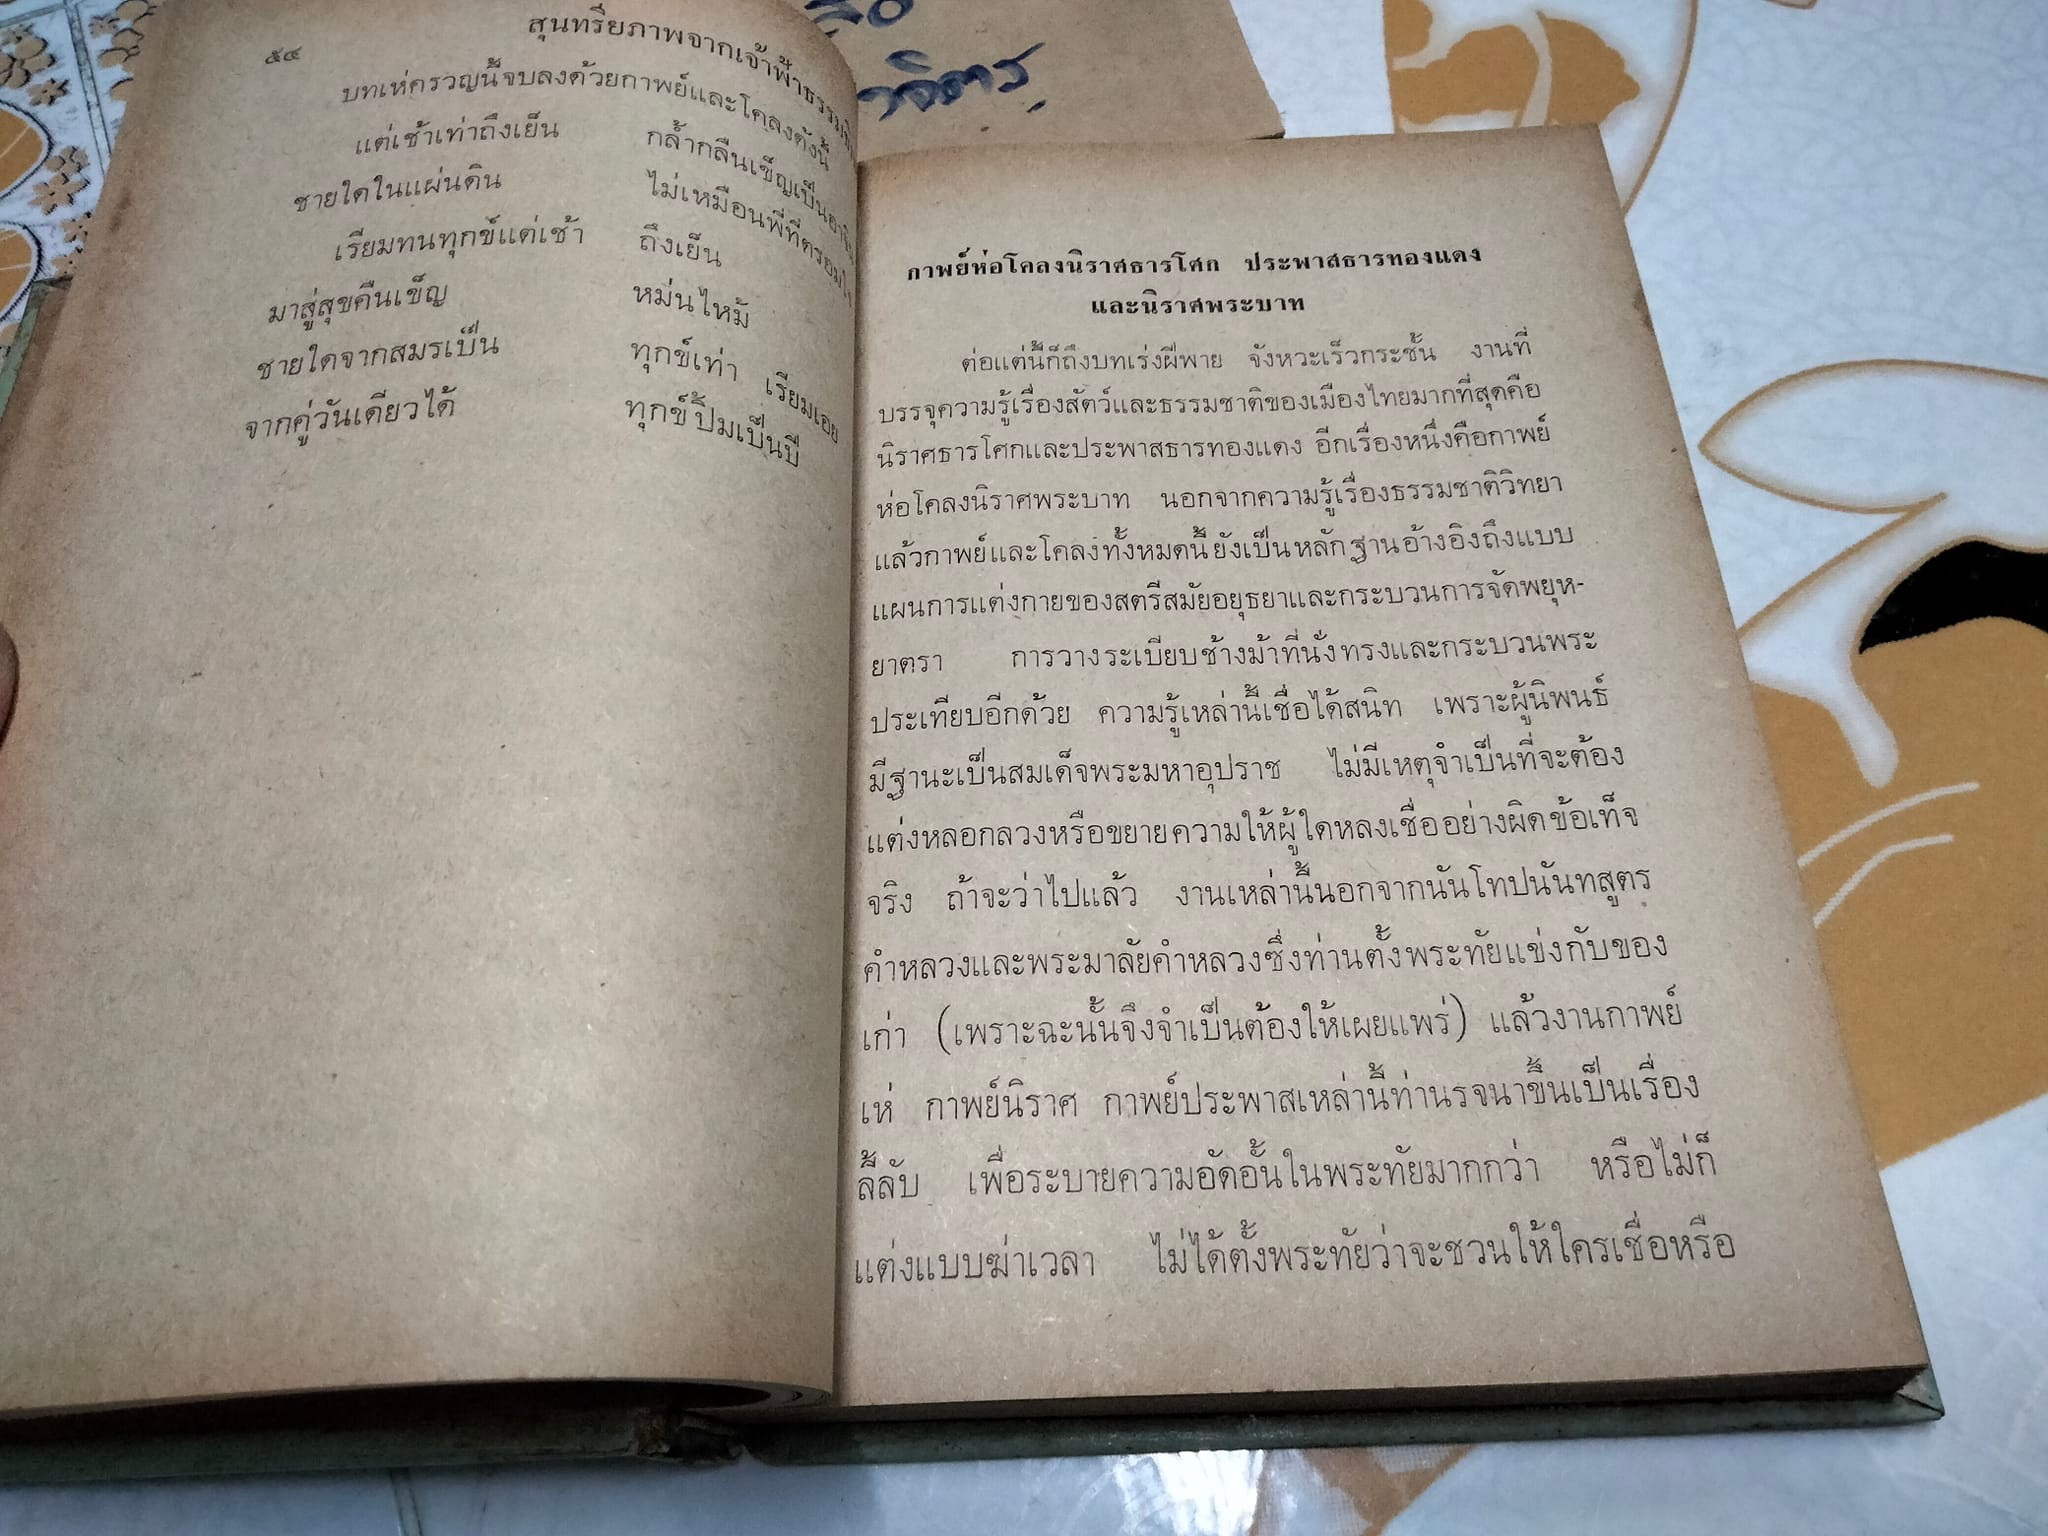 ๕๔
สุนทรียภาพจากเจ้าฟ้าธรรม
บทเห่ครวญนี้จบลงด้วยกาพย์และโคลงดังนี้
แต่เช้าเท่าถึงเย็น กล้ำกลืนเข็ญเป็นอาจิณ
ชายใดในแผ่นดิน ไม่เหมือนพี่ที่ตรอมใจ
เรียมทนทุกข์แต่เช้า ถึงเย็น
มาสู่สุขคืนเข็ญ หม่นไหม้
ชายใดจากสมรเป็น ทุกข์เท่า เรียมเอย
จากคู่วันเดียวได้ ทุกข์ปิ้มเป็นปี
กาพย์ห่อโคลงนิราศธารโศก ประพาสธารทองแดง
และนิราศพระบาท
ต่อแต่นี้ก็ถึงบทเร่งฝีพาย จังหวะเร็วกระชั้น งานที่
บรรจุความรู้เรื่องสัตว์และธรรมชาติของเมืองไทยมากที่สุดคือ
นิราศธารโศกและประพาสธารทองแดง อีกเรื่องหนึ่งคือกาพย์
ห่อโคลงนิราศพระบาท นอกจากความรู้เรื่องธรรมชาติวิทยา
แล้วกาพย์และโคลงทั้งหมดนี้ยังเป็นหลักฐานอ้างอิงถึงแบบ
แผนการแต่งกายของสตรีสมัยอยุธยาและกระบวนการจัดพยุห-
ยาตรา การวางระเบียบช้างม้าที่นั่งทรงและกระบวนพระ
ประเทียบอีกด้วย ความรู้เหล่านี้เชื่อได้สนิท เพราะผู้นิพนธ์
มีฐานะเป็นสมเด็จพระมหาอุปราช ไม่มีเหตุจำเป็นที่จะต้อง
แต่งหลอกลวงหรือขยายความให้ผู้ใดหลงเชื่ออย่างผิดข้อเท็จ
จริง ถ้าจะว่าไปแล้ว งานเหล่านี้นอกจากนันโทปนันทสูตร
คำหลวงและพระมาลัยคำหลวงซึ่งท่านตั้งพระทัยแข่งกับของ
เก่า (เพราะฉะนั้นจึงจำเป็นต้องให้เผยแพร่) แล้วงานกาพย์
เห่ กาพย์นิราศ กาพย์ประพาสเหล่านี้ท่านรจนาขึ้นเป็นเรื่อง
ลี้ลับ เพื่อระบายความอัดอั้นในพระทัยมากกว่า หรือไม่ก็
แต่งแบบฆ่าเวลา ไม่ได้ตั้งพระทัยว่าจะชวนให้ใครเชื่อหรือ